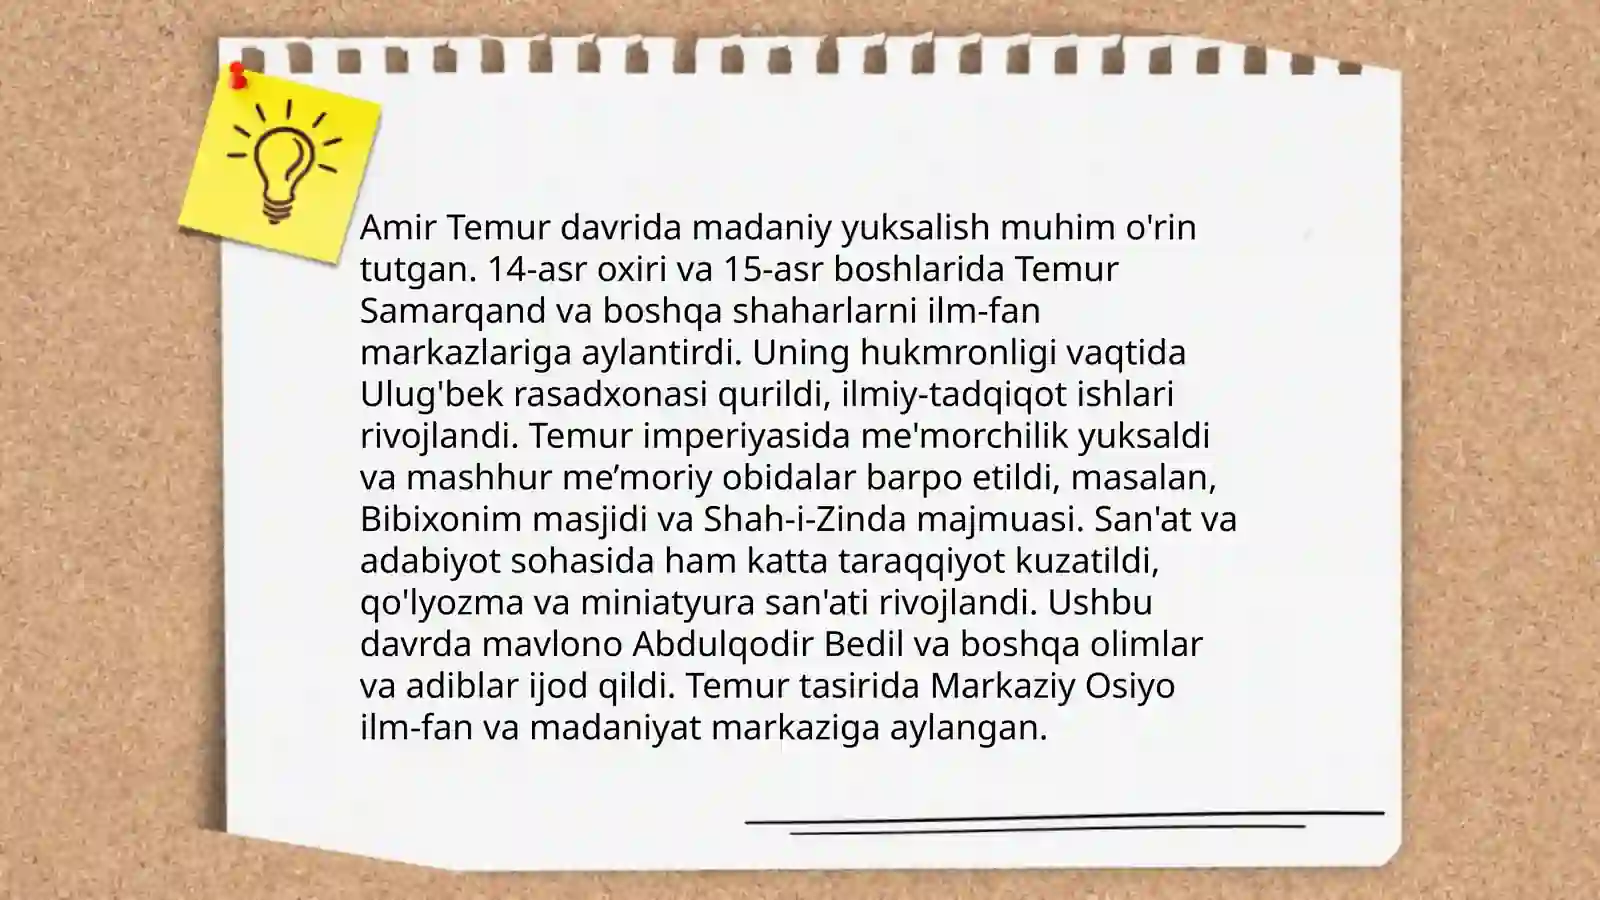 Amir Temur davrida madaniy yuksalish muhim o'rin
tutgan. 14-asr oxiri va 15-asr boshlarida Temur
Samarqand va boshqa shaharlarni ilm-fan
markazlariga aylantirdi. Uning hukmronligi vaqtida
Ulug'bek rasadxonasi qurildi, ilmiy-tadqiqot ishlari
rivojlandi. Temur imperiyasida me'morchilik yuksaldi
va mashhur me’moriy obidalar barpo etildi, masalan,
Bibixonim masjidi va Shah-i-Zinda majmuasi. San'at va
adabiyot sohasida ham katta taraqqiyot kuzatildi,
qo'lyozma va miniatyura san'ati rivojlandi. Ushbu
davrda mavlono Abdulqodir Bedil va boshqa olimlar
va adiblar ijod qildi. Temur tasirida Markaziy Osiyo
ilm-fan va madaniyat markaziga aylangan.